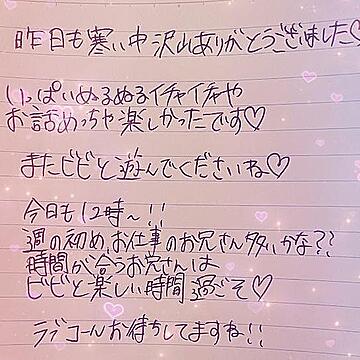 昨日も寒い中沢山ありがとうございました♡
いっぱいぬるぬるイチャイチャや
お話めっちゃ楽しかったです♡
またビビと遊んでくださいね♡
今日も12時〜!!
週の初め、お仕事のお兄さん多いかな??
時間が合うお兄さんは
ビビと楽しい時間過ごそ♡
ラブコールお待ちしてますね!!